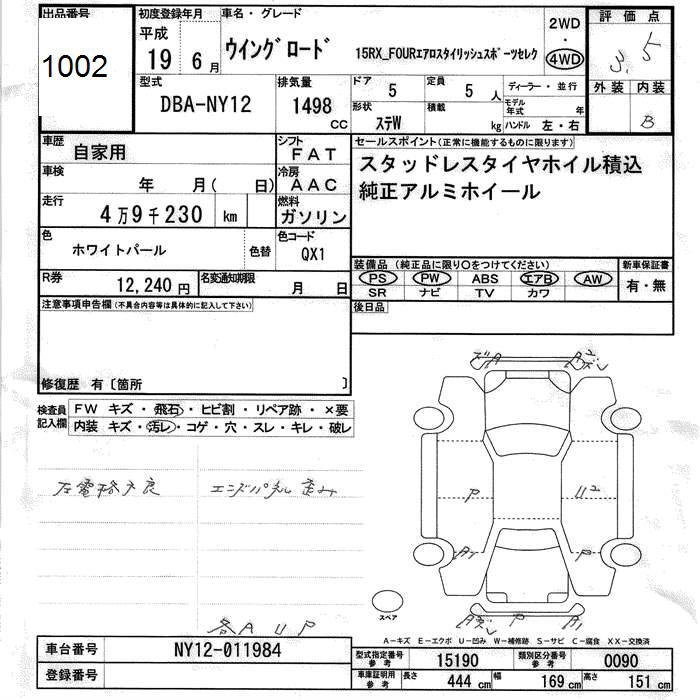 出品番号
1002
初度登録年月
平成
19 6 月
車名・グレード
ウイングロード
15RX_FOURエアロスタイリッシュスポーツセレク
2WD
・
4WD
評価点
3.5
外装 内装
B
型式
DBA-NY12
排気量
1498
CC
ドア
5
定員
5 人
形状
ステW
積載
kg
ディーラー・並行
モデル
年式 年
ハンドル 左・右
車歴
自家用
シフト
FAT
車検
年 月( 日)
冷房
AAC
走行
4万9千230 km
燃料
ガソリン
色
ホワイトパール
色替
色コード
QX1
R券
12,240 円
名変通知期限
月 日
セールスポイント(正常に機能するものに限ります)
スタッドレスタイヤホイル積込
純正アルミホイール
装備品 (純正品に限り○をつけてください)
PS PW ABS エアB AW
SR ナビ TV カワ
新車保証書
有・無
後日品
注意事項申告欄(不具合内容等は具体的に記入して下さい)
修復歴 有〔箇所 〕
検査員
記入欄
FW キズ・飛石・ヒビ割・リペア跡・×要
内装 キズ・汚レ・コゲ・穴・スレ・キレ・破レ
左電格不良
エンドパネル歪み
各AUP
A
P
U2
A1
P
P
A1
スペア
A-キズ E-エクボ U-凹み W-補修跡 S-サビ C-腐食 XX-交換済
車台番号
NY12-011984
登録番号
型式指定番号
参考
15190
類別区分番号
参考
0090
車庫証明用
参考
長さ
444 cm
幅
169 cm
高さ
151 cm